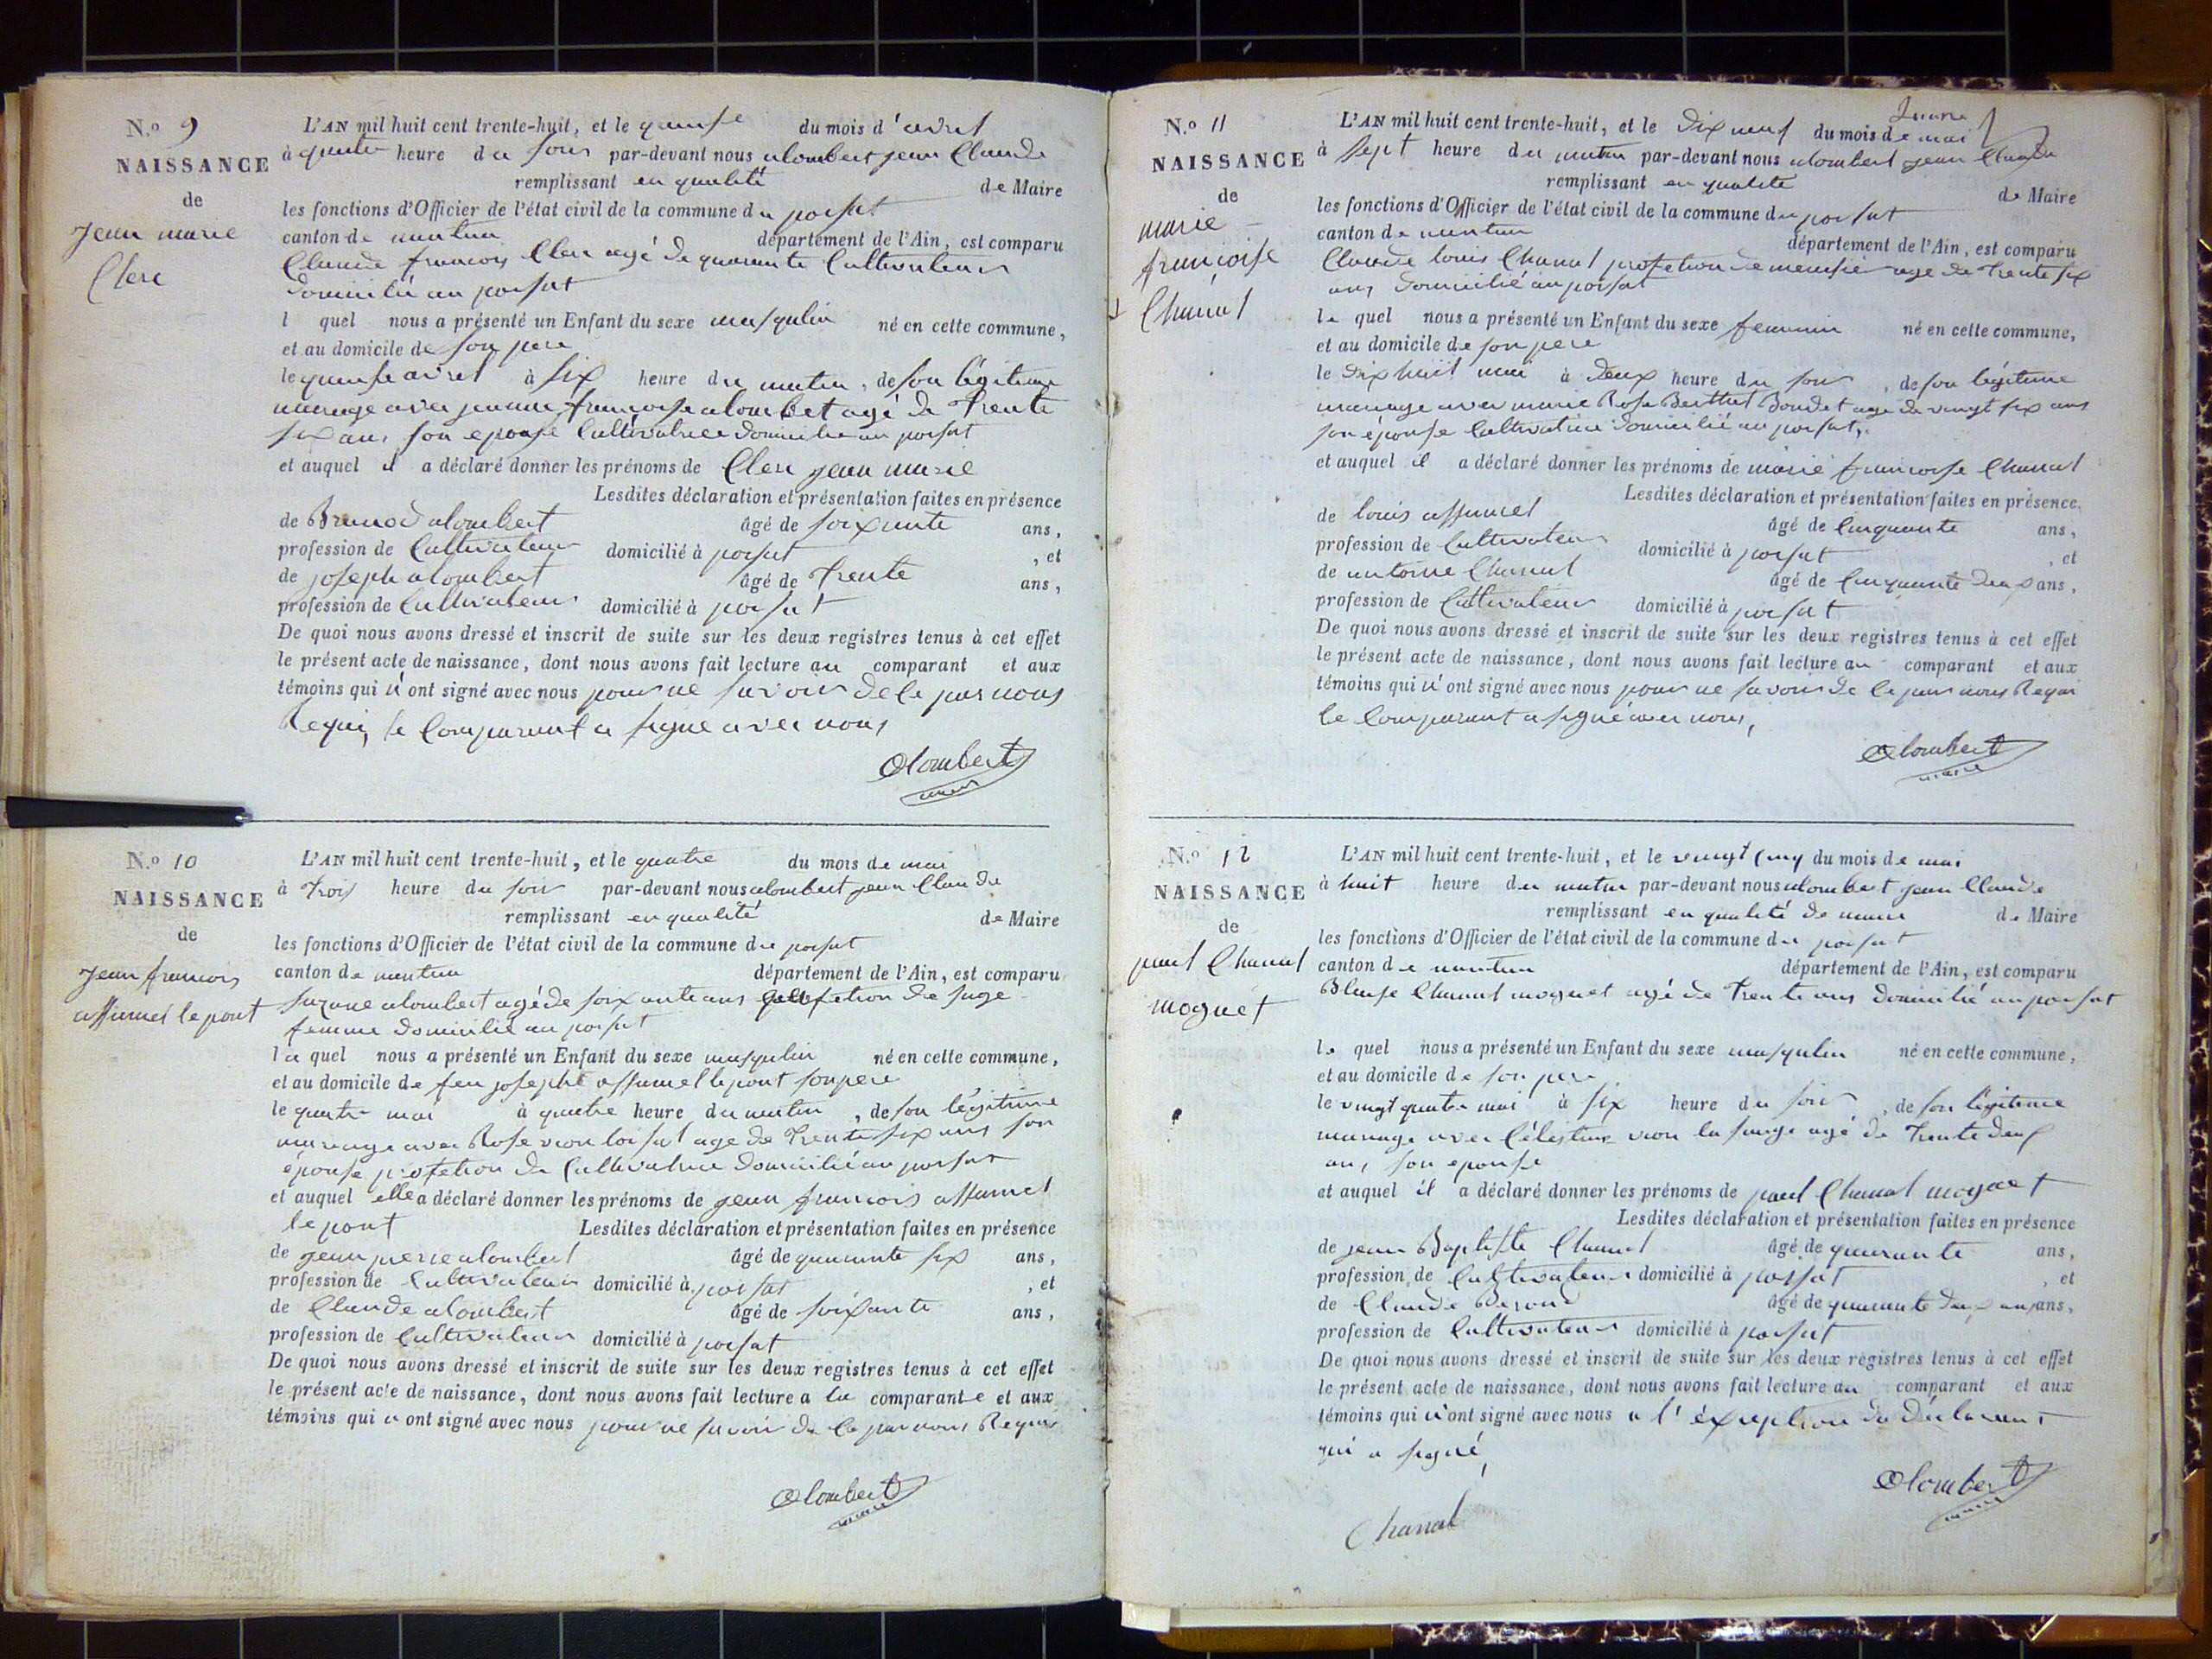 N.o 9
NAISSANCE
de
jean marie
Clerc
L'AN mil huit cent trente-huit, et le quinse du mois d'avril
à quatre heure du soir par-devant nous alombert jean Claude
remplissant en qualité de Maire
les fonctions d'Officier de l'état civil de la commune du poisat
canton de nantua département de l'Ain, est comparu
Claude francois Clerc agé de quarante Cultivateur
domicilié au poisat
l quel nous a présenté un Enfant du sexe masqulin né en cette commune,
et au domicile de son pere
le quinse avril à six heure du matin, de son légitime
mariage avec jeanne francoise alombert agé de Trente
six ans, son epouse Cultivatrice domicilié au poisat
et auquel il a déclaré donner les prénoms de Clerc jean marie
Lesdites déclaration et présentation faites en présence
de Brunod alombert âgé de soixante ans,
profession de Cultivateur domicilié à poisat , et
de joseph alombert âgé de Trente ans,
profession de Cultivateur domicilié à poisat
De quoi nous avons dressé et inscrit de suite sur les deux registres tenus à cet effet
le présent acte de naissance, dont nous avons fait lecture au comparant et aux
témoins qui n'ont signé avec nous pour ne savoir de ce par nous
Requi, le Comparant a signé avec nous,
alombert
maire
N.o 10
NAISSANCE
de
jean francois
assumel lepont
L'AN mil huit cent trente-huit, et le quatre du mois de mai
à Trois heure du soir par-devant nous alombert jean Claude
remplissant en qualité de Maire
les fonctions d'Officier de l'état civil de la commune du poisat
canton de nantua département de l'Ain, est comparu
suzane alombert agé de soixante ans profetion de sage
femme domicilié au poisat
la quel nous a présenté un Enfant du sexe masqulin né en cette commune,
et au domicile de feu josephe assumel lepont son pere
le quatre mai à quatre heure du matin, de son légitime
mariage avec Rose vion loisat age de Trente six ans son
épouse profetion de Cultivatrice domicilié au poisat
et auquel elle a déclaré donner les prénoms de jean francois assumel
le pont Lesdites déclaration et présentation faites en présence
de jean pierre alombert âgé de quarante six ans,
profession de Cultivateur domicilié à poisat , et
de Claude alombert âgé de soixante ans,
profession de Cultivateur domicilié à poisat
De quoi nous avons dressé et inscrit de suite sur les deux registres tenus à cet effet
le présent acte de naissance, dont nous avons fait lecture a la comparante et aux
témoins qui n ont signé avec nous pour ne savoir de ce par nous Requis
alombert
maire
N.o 11
NAISSANCE
de
marie
francoise
Chanal
L'AN mil huit cent trente-huit, et le Dix neuf du mois de mai
à sept heure du matin par-devant nous alombert jean Claude
remplissant en qualité de Maire
les fonctions d'Officier de l'état civil de la commune du poisat
canton de nantua département de l'Ain, est comparu
Claude louis Chanal profetion de menusier age de Trente six
ans domicilié au poisat
le quel nous a présenté un Enfant du sexe feminin né en cette commune,
et au domicile de son pere
le dix huit mai à deux heure du soir, de son légitime
mariage avec marie Rose Berthet Bondet age de vingt six ans
son épouse Cultivatrice domicilié au poisat,
et auquel il a déclaré donner les prénoms de marie francoise Chanal
Lesdites déclaration et présentation faites en présence
de louis assumel âgé de Cinquante ans,
profession de Cultivateur domicilié à poisat , et
de antoine Chanal âgé de Cinquante deux ans,
profession de Cultivateur domicilié à poisat
De quoi nous avons dressé et inscrit de suite sur les deux registres tenus à cet effet
le présent acte de naissance, dont nous avons fait lecture au comparant et aux
témoins qui n'ont signé avec nous pour ne savoir de ce par nous Requi
le Comparant a signé avec nous,
alombert
maire
N.o 12
NAISSANCE
de
paul Chanal
moguet
L'AN mil huit cent trente-huit, et le vingt Cinq du mois de mai
à huit heure du matin par-devant nous alombert jean Claude
remplissant en qualité de maire de Maire
les fonctions d'Officier de l'état civil de la commune du poisat
canton de nantua département de l'Ain, est comparu
Blaise Chanal moguet agé de Trente ans domicilié au poisat
le quel nous a présenté un Enfant du sexe masqulin né en cette commune,
et au domicile de son pere
le vingt quatre mai à six heure du soir, de son légitime
mariage avec Célestine vion la sange agé de Trente deux
ans, son epouse
et auquel il a déclaré donner les prénoms de paul Chanal moguet
Lesdites déclaration et présentation faites en présence
de jean Baptiste Chanal âgé de quarante ans,
profession de Cultivateur domicilié à poisat , et
de Claude Berod âgé de quarante deux ans,
profession de Cultivateur domicilié à poisat
De quoi nous avons dressé et inscrit de suite sur les deux registres tenus à cet effet
le présent acte de naissance, dont nous avons fait lecture au comparant et aux
témoins qui n'ont signé avec nous a l'éxeption du déclarant
qui a signé,
alombert
maire
Chanal